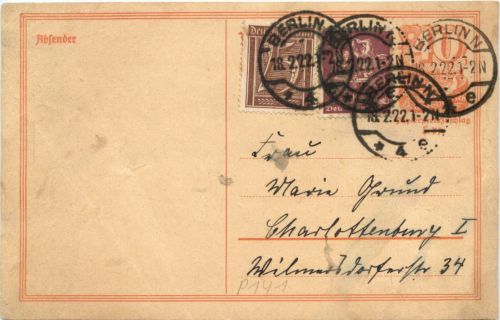 Absender
BERLIN N
18.2.22.1-2N
* 4 e
BERLIN N
18.2.22.1-2N
BERLIN N
18.2.22.1-2N
* 4 e
BERLIN N
18.2.22.1-2N
e
Frau
Marie Grund
Charlottenburg I
Wilmersdorferstr 34
P141